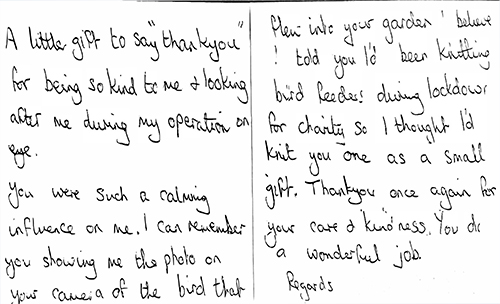 A little gift to say "thankyou"
for being so kind to me & looking
after me during my operation on
eye.
You were such a calming
influence on me. I can remember
you showing me the photo on
your camera of the bird that
flew into your garden I believe
I told you I'd been knitting
bird feeders during lockdown
for charity so I thought I'd
knit you one as a small
gift. Thankyou once again for
your care & kindness. You do
a wonderful job.
Regards